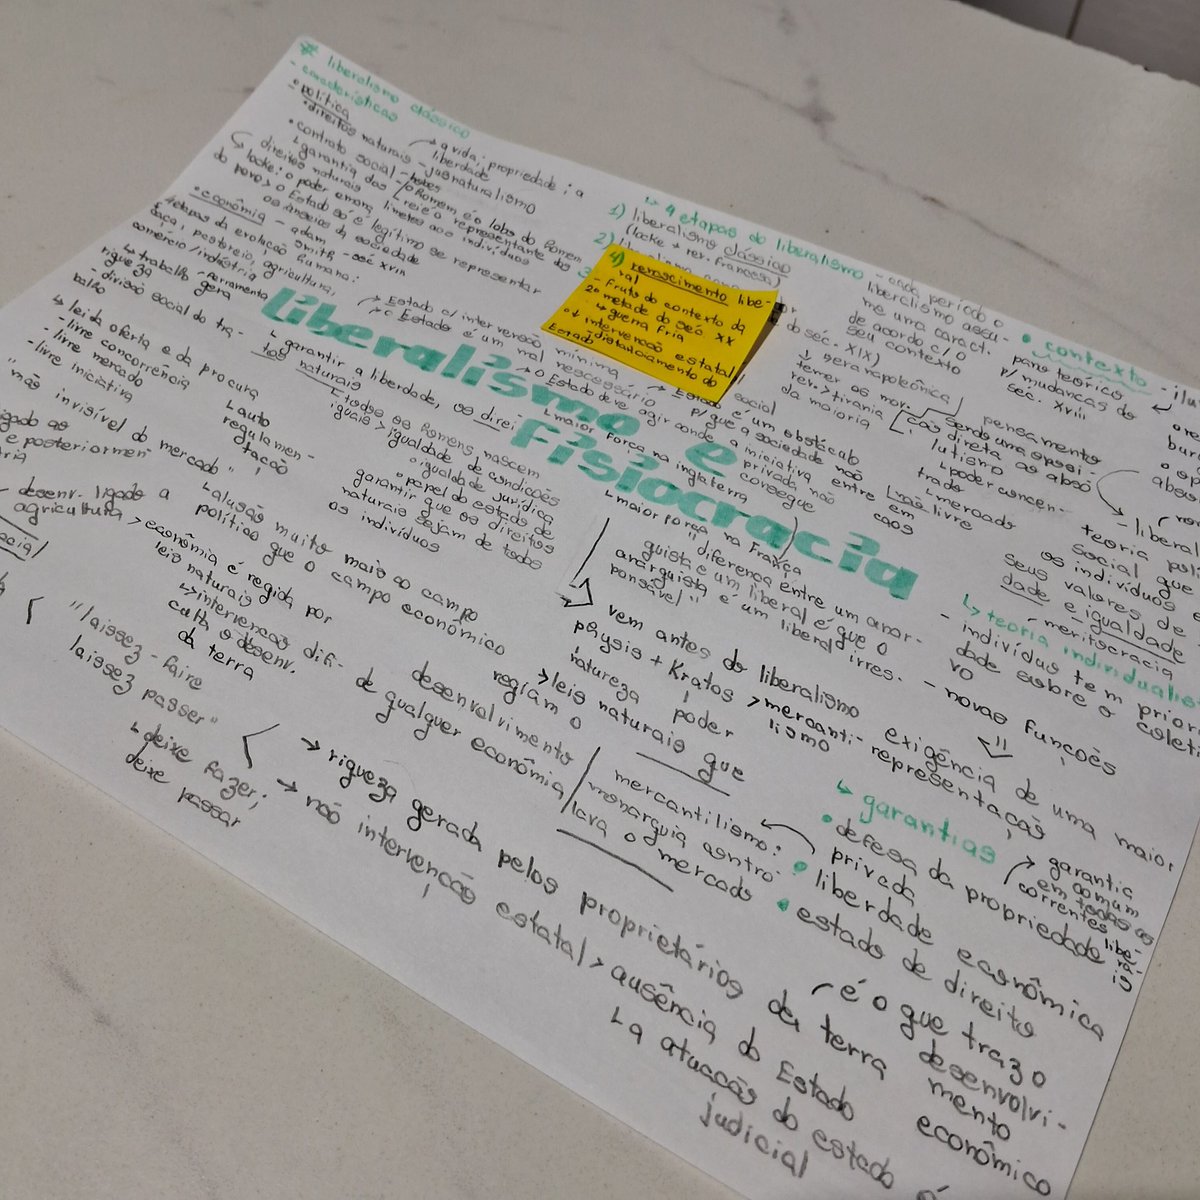 # liberalismo clássico
- características
• política
• direitos naturais - jusnaturalismo
↱ a vida; propriedade; a
liberdade
• contrato social - hobbes
↳ garantia dos
direitos naturais
o homem é o lobo do homem
rei é o representante dos
locke: o poder emana
limites aos indivíduos
do povo > o Estado só é legítimo se representar
os anseios da sociedade
• economia - adam smith - séc XVIII
4 etapas da evolução humana:
caça, pastoreio, agricultura,
comércio/indústria
↳ trabalho gera
riqueza
ferramenta
- divisão social do tra-
balho
↳ lei da oferta e da procura
- livre concorrência
- livre mercado
- livre iniciativa
↳ auto
regulamen-
tação
"mão invisível do mercado"
↳ alusão muito mais ao campo
político que o campo econômico
liberalismo e
fisiocracia
→ Estado c/ intervenção mínima
→ Estado é um mal necessário
↳ garantir a liberdade, os direi-
tos naturais
→ o Estado deve agir onde a iniciativa
privada não consegue
→ Estado é um obstáculo
p/ que a sociedade não
entre em
caos
↳ maior força na inglaterra
Etodos os homens nascem
iguais > igualdade de condições
• igualdade jurídica
• papel do estado de
garantir que os direitos
naturais sejam de todos
os indivíduos
↳ 4 etapas do liberalismo
1) liberalismo clássico
(locke + rev. francesa)
2)
4) renascimento libe-
ral
- fruto do contexto da
2º metade do séc. XX
↳ guerra fria
↓ intervenção estatal
distanciamento do
Estado
do séc. XIX)
↓ era napoleônica
rev. > tirania
da maioria
social
- cada período o
liberalismo assu-
me uma caract.
de acordo c/ o
seu contexto
• contexto
pano teórico
p/ mudanças do
séc. XVIII
pensamento
sendo uma oposi-
ção direta ao abso
lutismo
↳ poder concen-
trado
↳ mercado
não livre
teoria
social que
os indivíduos e
seus valores de
dade e igualdade
- meritocracia
↳ teoria individualis
- indivíduo tem prior
dade sobre o coleti
vo
- novas funções
exigência de uma maior
representação
↳ maior força na França
"diferença entre um anar-
quista e um liberal é que o
anarquista é um liberal irres-
ponsável"
vem antes do liberalismo
physis + Kratos > mercanti-
lismo
natureza poder
> leis naturais que
regiam o
desenvolvimento
de qualquer economia
mercantilismo:
monarquia contro-
lava o mercado
↳ garantias
• defesa da propriedade
privada
• liberdade econômica
• estado de direito
→ garantia
comum
em todas as
correntes libe-
ra-
is
é o que traz o
desenvolvi-
mento
econômico
desenv. ligado a
agricultura > economia é regida por
leis naturais
↳ intervenção difi-
culta o desenv.
da terra
"laissez-faire
laissez passer"
↳ deixe fazer;
deixe passar
→ riqueza gerada pelos proprietários de terra
→ não intervenção estatal > ausência do Estado
↳ a atuação do estado é
judicial